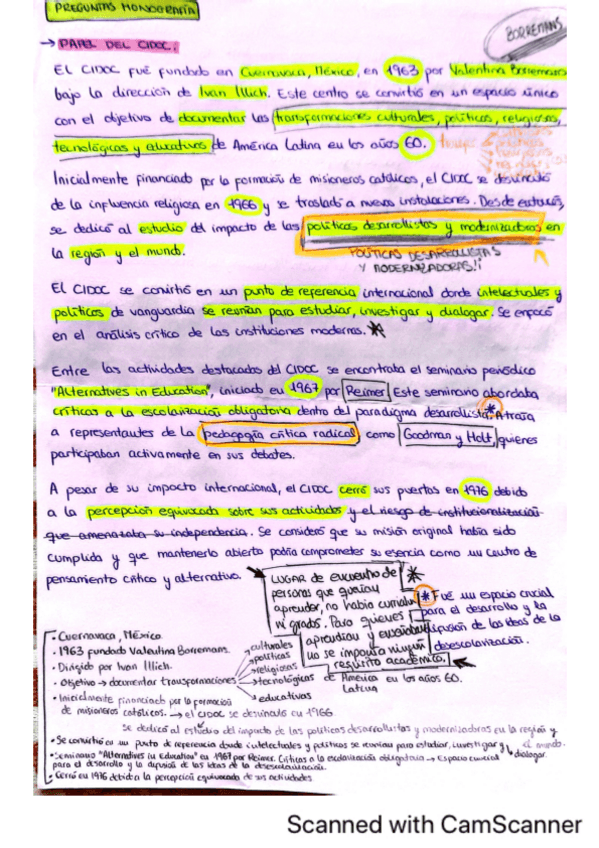 PREGUNTAS MONOGRAFÍA
BORREMANS
→ PAPEL DEL CIDOC:
EL CIDOC fué fundado en Cuernavaca, México, en 1963 por Valentina Borremans
bajo la dirección de Ivan Illich. Este centro se convirtió en un espacio único
con el objetivo de documentar las transformaciones culturales, políticas, religiosas,
tecnológicas y educativas de América Latina en los años 60.
Inicialmente financiado por la formación de misioneros católicos, el CIDOC se desvinculó
de la influencia religiosa en 1966 y se trasladó a nuevas instalaciones. Desde entonces,
se dedicó al estudio del impacto de las políticas desarrollistas y modernizadoras en
la región y el mundo.
POLÍTICAS DESARROLLISTAS
Y MODERNIZADORAS!!
EL CIDOC se convirtió en un punto de referencia internacional donde intelectuales y
políticos de vanguardia se reunían para estudiar, investigar y dialogar. Se enfocó
en el análisis crítico de las instituciones modernas. *
Entre las actividades destacadas del CIDOC se encontraba el seminario periódico
"Alternatives in Education", iniciado en 1967 por Reimer. Este seminario abordaba
críticas a la escolarización obligatoria dentro del paradigma desarrollista.* Atraía
a representantes de la pedagogía crítica radical como Goodman y Holt, quienes
participaban activamente en sus debates.
A pesar de su impacto internacional, el CIDOC cerró sus puertas en 1976 debido
a la percepción equivocada sobre sus actividades y el riesgo de institucionalización
que amenazaba su independencia. Se consideró que su misión original había sido
cumplida y que mantenerlo abierto podría comprometer su esencia como un centro de
pensamiento crítico y alternativo.
LUGAR de encuentro de *
personas que querían
aprender, no había curriculum
ni grados. Para quienes
aprendían y enseñaban
no se imponía ningún
requisito académico.
* Fué un espacio crucial
para el desarrollo y la
difusión de las ideas de la
desescolarización.
• Cuernavaca, México
• 1963 fundado Valentina Borremans
• Dirigido por Ivan Illich.
• Objetivo → documentar transformaciones
culturales
políticas
religiosas
tecnológicas
educativas
de América en los años 60.
Latina
• Inicialmente financiado por la formación
de misioneros católicos. → el CIDOC se desvinculó en 1966
se dedicó al estudio del impacto de las políticas desarrollistas y modernizadoras en la región y
el mundo.
• Se convirtió en un punto de referencia donde intelectuales y políticos se reunían para estudiar, investigar y
dialogar.
• Seminario "Alternatives in Education" en 1967 por Reimer. Críticas a la escolarización obligatoria → Espacio crucial
para el desarrollo y la difusión de las ideas de la desescolarización.
• Cerró en 1976 debido a la percepción equivocada de sus actividades
Scanned with CamScanner